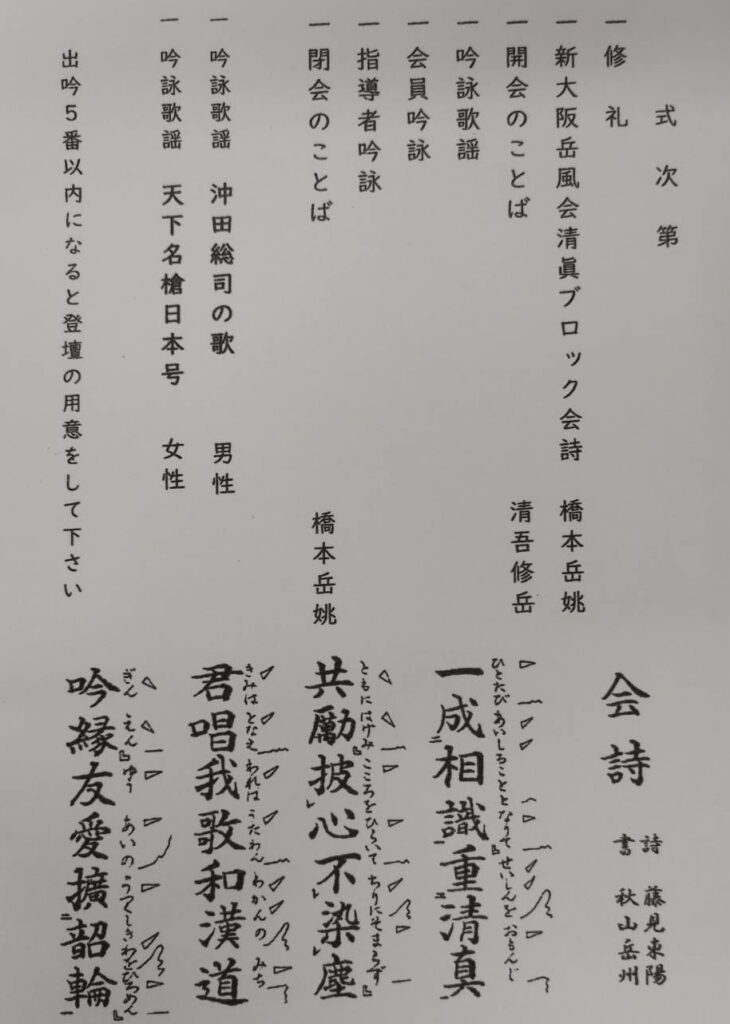 式次第
一 修礼
一 新大阪岳風会清眞ブロック会詩 橋本岳姚
一 開会のことば 清吾修岳
一 吟詠歌謡
一 会員吟詠
一 指導者吟詠
一 閉会のことば 橋本岳姚
一 吟詠歌謡 沖田総司の歌 男性
一 吟詠歌謡 天下名槍日本号 女性
出吟5番以内になると登壇の用意をして下さい
会詩
詩 藤見東陽
書 秋山岳州
ひとたび あいしることとなりて せいしんを おもんじ
一成二相識一重二清真一
ともにはげみ こころをひらいて ちりにそまらず
共励披レ心不レ染レ塵
きみは となえ われは うたわん わかんの みち
君唱我歌和漢道
ぎん えん ゆう あいの うてしきわをひろめん
吟縁友愛擴二韶輪一